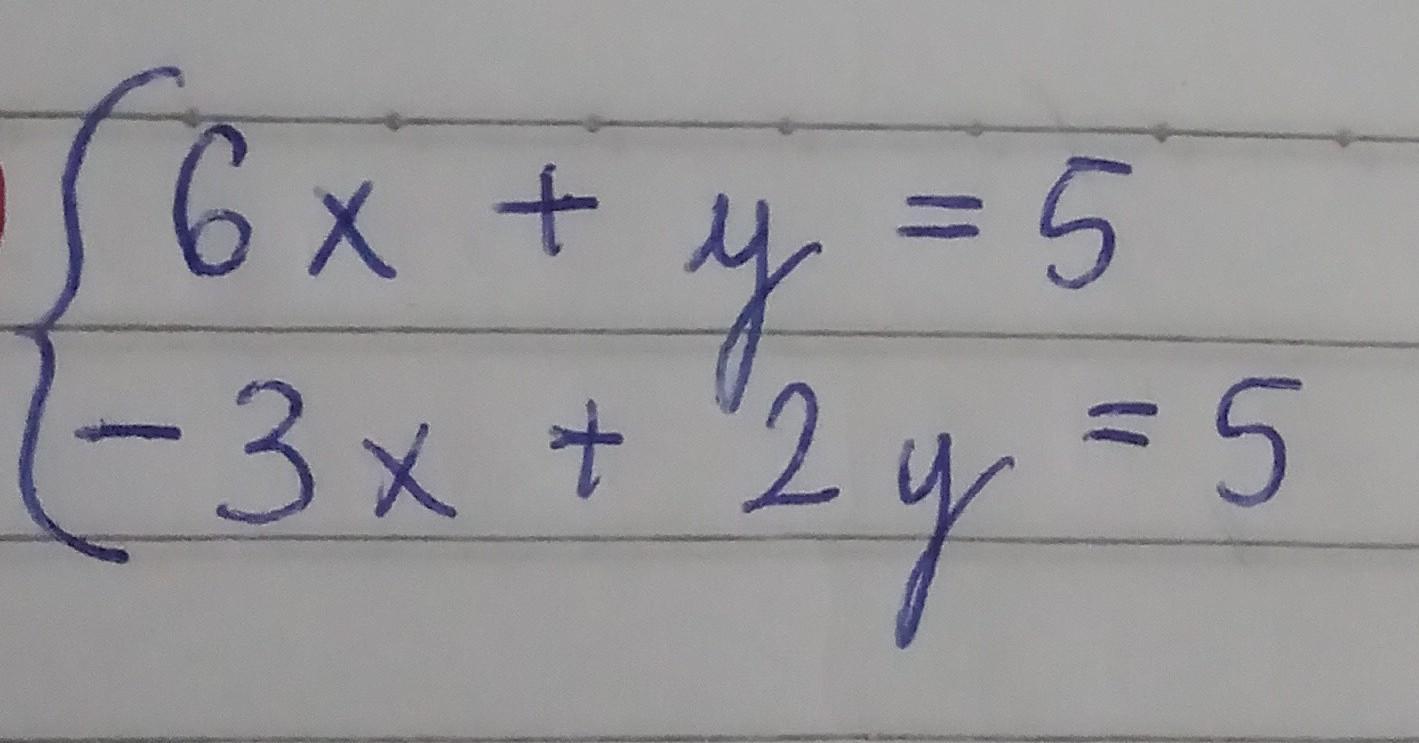 6x + y = 5
-3x + 2y = 5